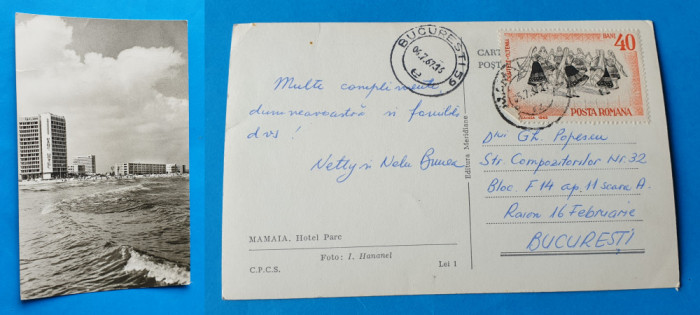 BUCUREȘTI 59
CARTE
POȘTALĂ
40
BANI
POSTA ROMANA
Multe complimente,
dumneavoastră și familiei
dvs!
Netty și Nelu Bunea
Editura Meridiane
Dlui Gh. Popescu
Str. Compozitorilor Nr. 32
Bloc. F14 ap. 11 scara A.
Raion 16 Februarie
BUCUREȘTI
MAMAIA. Hotel Parc
Foto: I. Hananel
C.P.C.S.
Lei 1